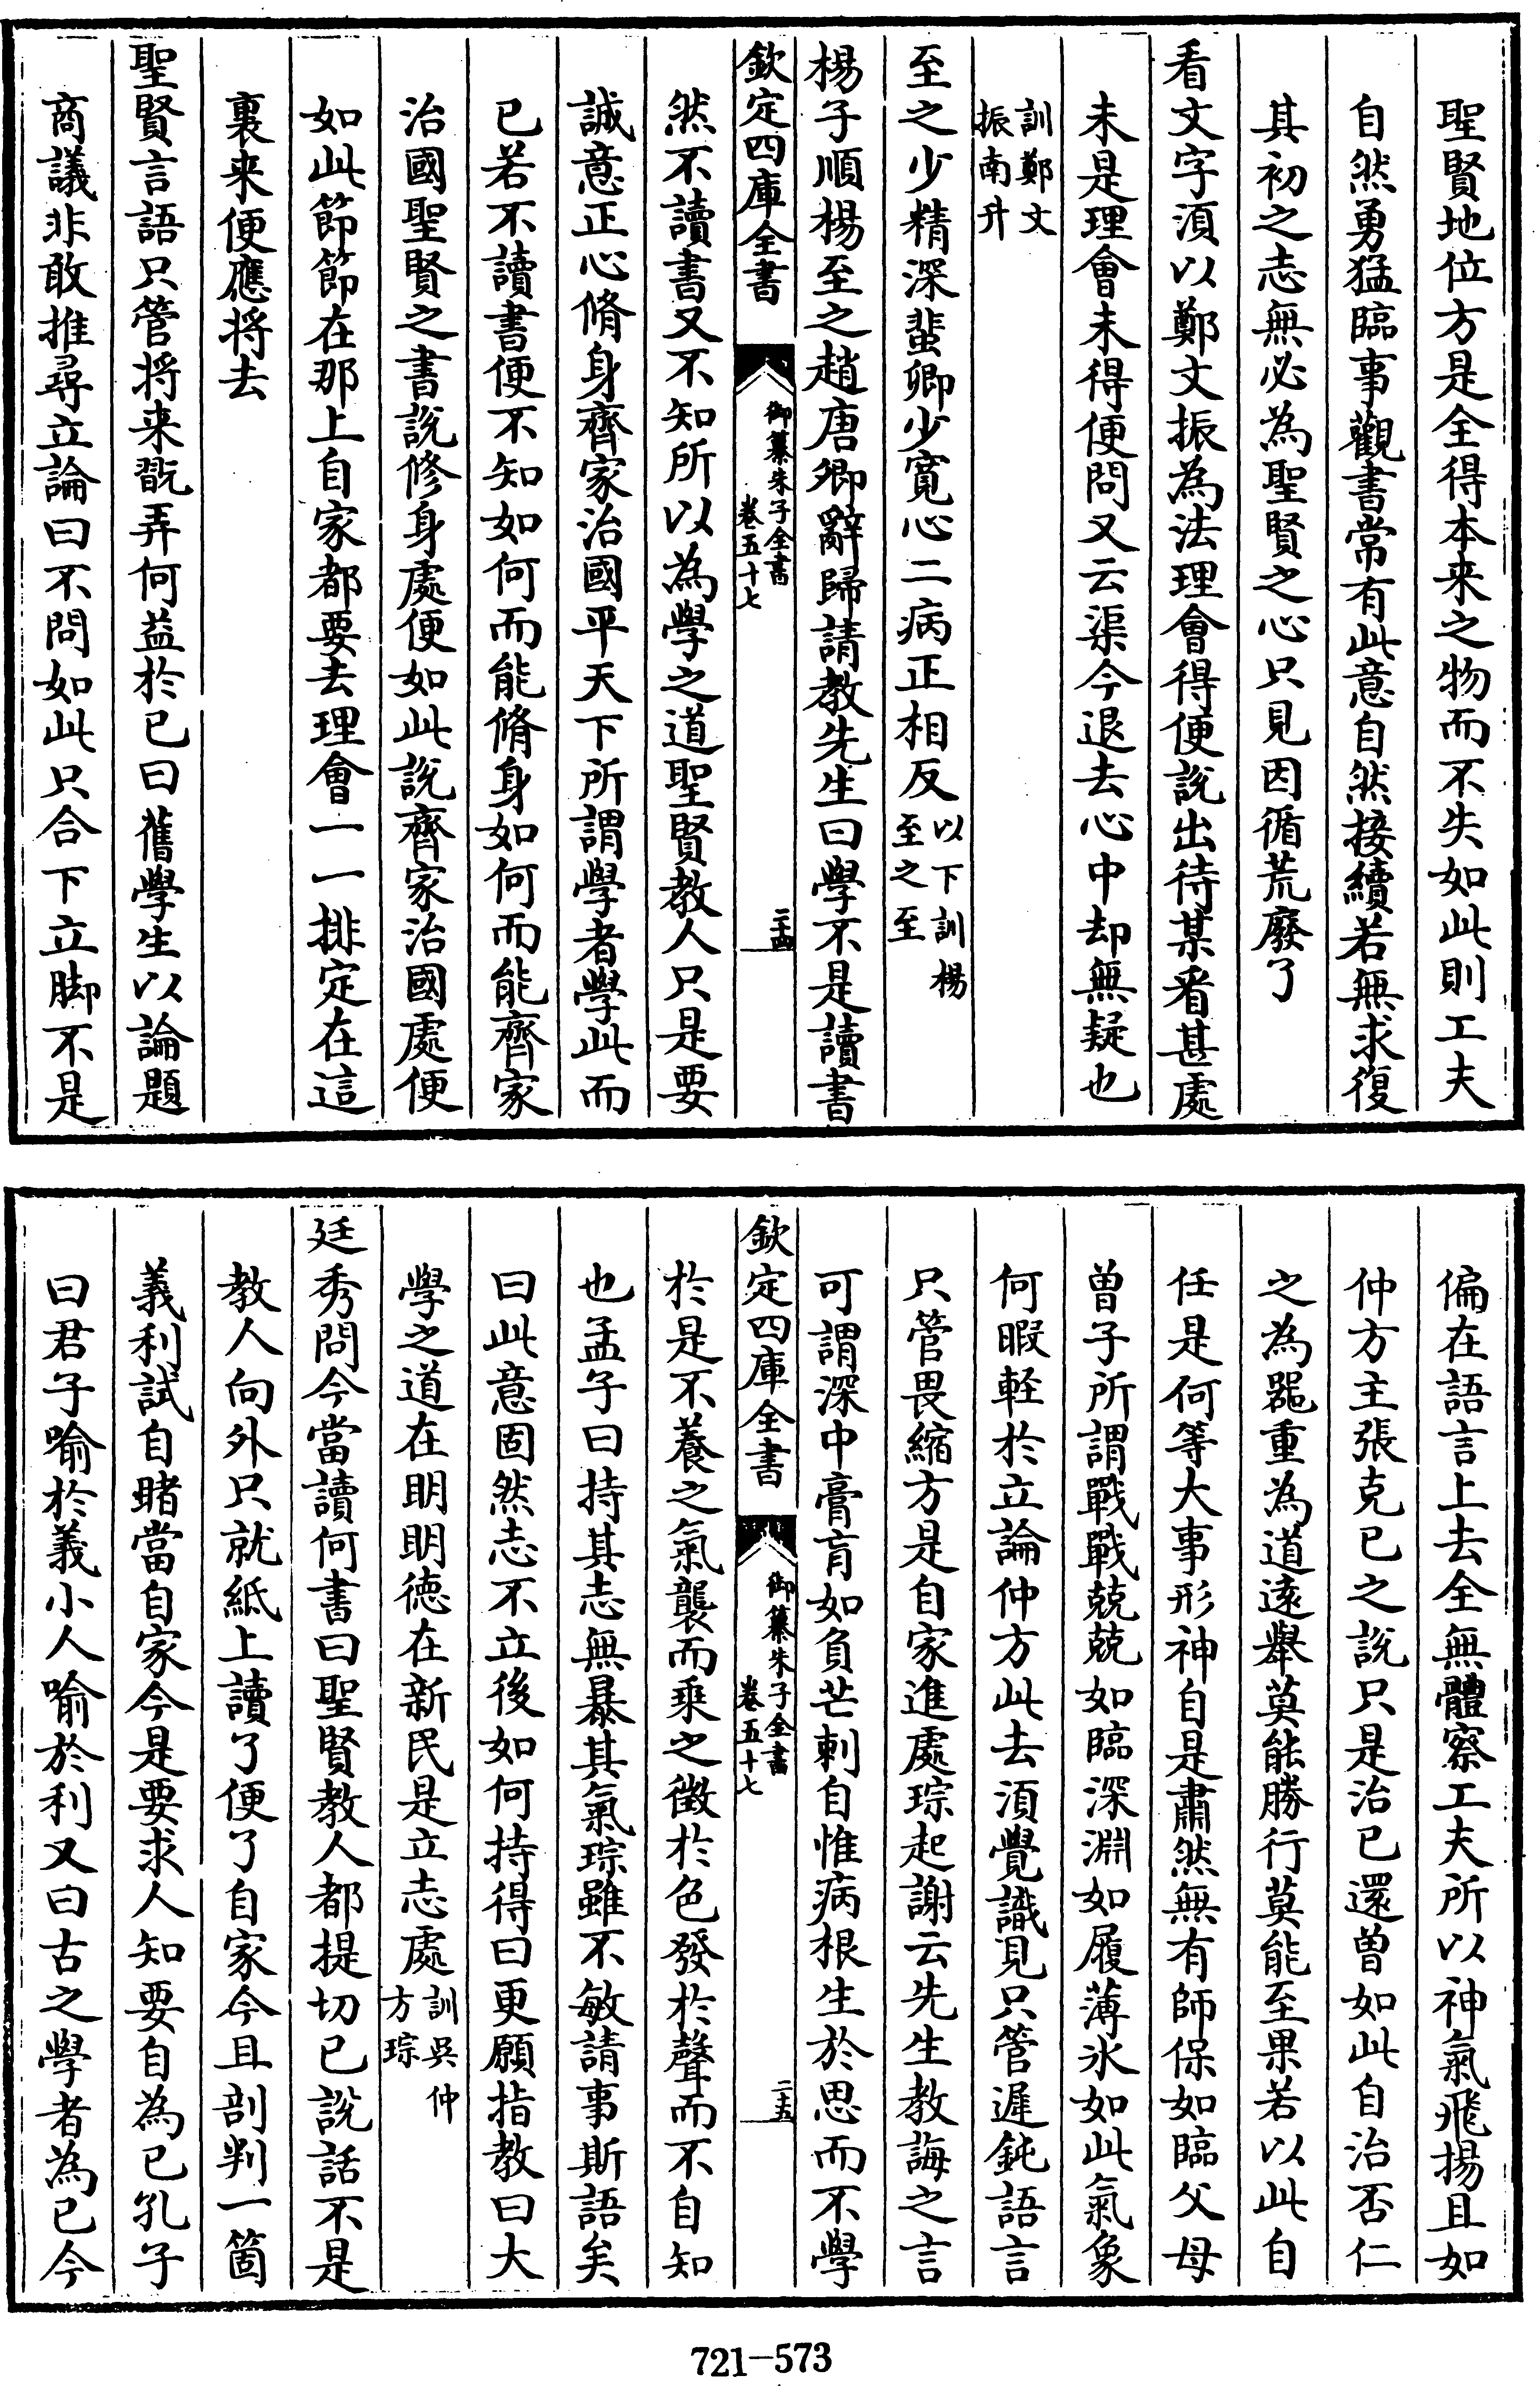 聖賢地位方是全得本来之物而不失如此則工夫
自然勇猛臨事觀書常有此意自然接續若無求復
其初之志無必為聖賢之心只見因循荒廢了
看文字湏以鄭文振為法理會得便說出待某看甚處
未是理會未得便問又云渠今退去心中却無疑也
訓鄭文
振南升
至之少精深蜚卿少寛心二病正相反以下訓楊
至之至
楊子順楊至之趙唐卿辭歸請教先生曰學不是讀書
欽定四庫全書
御纂朱子全書
卷五十七
二十四
然不讀書又不知所以為學之道聖賢教人只是要
誠意正心脩身齊家治國平天下所謂學者學此而
已若不讀書便不知如何而能脩身如何而能齊家
治國聖賢之書說修身處便如此說齊家治國處便
如此節節在那上自家都要去理會一一排定在這
裏来便應将去
聖賢言語只管将来翫弄何益於已曰舊學生以論題
商議非敢推尋立論曰不問如此只合下立脚不是
偏在語言上去全無體察工夫所以神氣飛揚且如
仲方主張克已之說只是治已還曽如此自治否仁
之為噐重為道逺舉莫能勝行莫能至果若以此自
任是何等大事形神自是肅然無有師保如臨父母
曽子所謂戰戰兢兢如臨深淵如履薄氷如此氣象
何暇軽於立論仲方此去湏覺識見只管遲鈍語言
只管畏縮方是自家進處琮起謝云先生教誨之言
可謂深中膏肓如負芒刺自惟病根生於思而不學
欽定四庫全書
御纂朱子全書
卷五十七
二十五
於是不養之氣襲而乘之徴於色發於聲而不自知
也孟子曰持其志無暴其氣琮雖不敏請事斯語矣
曰此意固然志不立後如何持得曰更願指教曰大
學之道在明明德在新民是立志處訓吳仲
方琮
廷秀問今當讀何書曰聖賢教人都提切已說話不是
教人向外只就紙上讀了便了自家今且剖判一箇
義利試自睹當自家今是要求人知要自為已孔子
曰君子喻於義小人喻於利又曰古之學者為已今
721-573